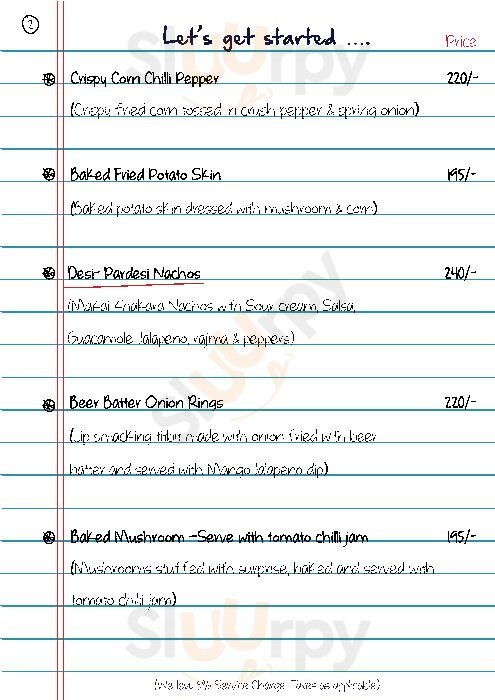 2
Let's get started ....
Price
Crispy Corn Chilli Pepper 220/-
(Crispy fried corn tossed in crush pepper & spring onion)
Baked Fried Potato Skin 195/-
(Baked potato skin dressed with mushroom & corn)
Desi- Pardesi Nachos 240/-
(Makai Khakara Nachos with Sour cream, Salsa,
Guacamole Jalapeno, rajma & peppers)
Beer Batter Onion Rings 220/-
(Lip smacking titbit made with onion fried with beer
batter and served with Mango Jalapeno dip)
Baked Mushroom -Serve with tomato chilli jam 195/-
(Mushrooms stuffed with surprise, baked and served with
tomato chilli jam)
(We levy Service Charge. Taxes as applicable)
Sluurpy
Sluurpy
Sluurpy